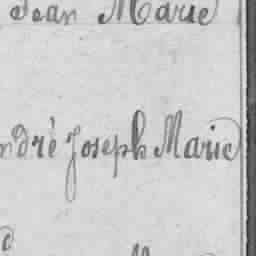 Jean Marie
ndré Joseph Marie